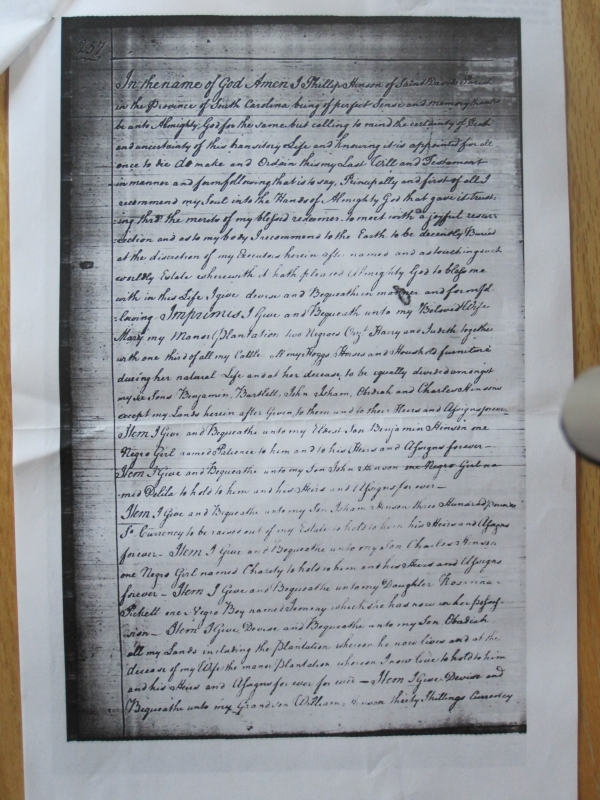 237
In the name of God Amen I Phillip Henson of Saint Davids Parish
in the Province of South Carolina being of perfect Sense and memory thanks
be unto Almighty God for the same but calling to mind the certainty of Death
and uncertainty of this transitory Life and knowing it is appointed for all
once to die do make and Ordain this my Last Will and Testament
in manner and form following that is to say, Principally and first of all I
recommend my Soul into the Hands of Almighty God that gave it trust-
ing thro the merits of my blessed redeemer to meet with a joyful resurr
ection and as to my body I recommend to the Earth to be decently Buried
at the discretion of my Executors herein after named and as touching such
worldly Estate wherewith it hath pleased Almighty God to bless me
with in this Life I give devise and Bequeath in manner and form fol
lowing Imprimis, I Give and Bequeath unto my Beloved Wife
Mary my Manor Plantation two Negroes Harry and Judeth together
with one third of all my Cattle all my Hoggs Horses and Houshold furniture
during her natural Life and at her decease to be equally divided amongst
my Sons Benjamin, Bartlett, John Isham, Obediah and Charles Hensons
except my Lands herein after Given to them and to their Heirs and Assigns forever
Item I Give and Bequeathe unto my Eldest Son Benjamin Henson one
Negro Girl named Patience to him and to his Heirs and Assigns forever —
Item I Give and Bequeathe unto my Son John Henson one Negro Girl na
med Delila to hold to him and his Heirs and Assigns forever —
Item I Give and Bequeathe unto my Son Isham Henson three Hundred pounds
So. Currency to be raised out of my Estate to hold to him his Heirs and Assigns
forever — Item I Give and Bequeathe unto my Son Charles Henson
one Negro Girl named Charety to hold to him and his Heirs and Assigns
forever — Item I Give and Bequeathe unto my Daughter Rosanna
Pickett one Negro Boy named Jemmy which she has now in her posses-
sion — Item I Give Devise and Bequeathe unto my Son Obediah
all my Lands including the Plantation whereon he now lives and at the
decease of my Wife the manor Plantation whereon I now live to hold to him
and his Heirs and Assigns for ever for ever — Item I Give Devise and
Bequeathe unto my Grandson William Henson thirty Shillings Currency